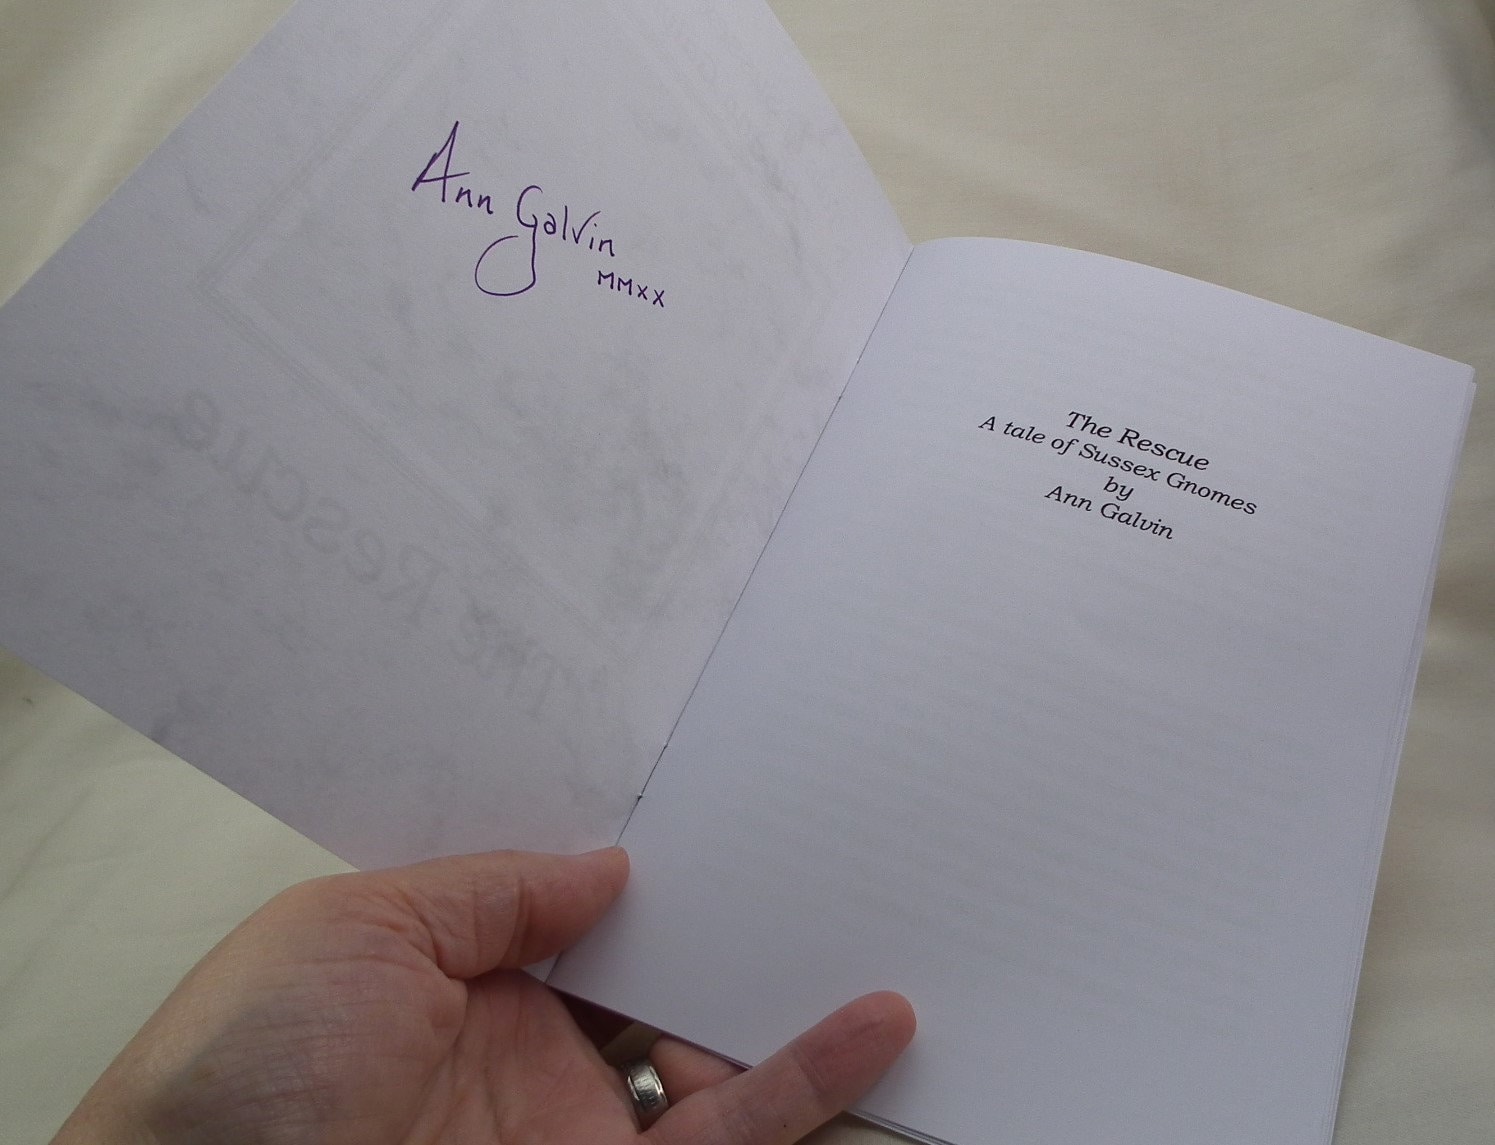 Ann Galvin
MMXX
The Rescue
The Rescue
A tale of Sussex Gnomes
by
Ann Galvin